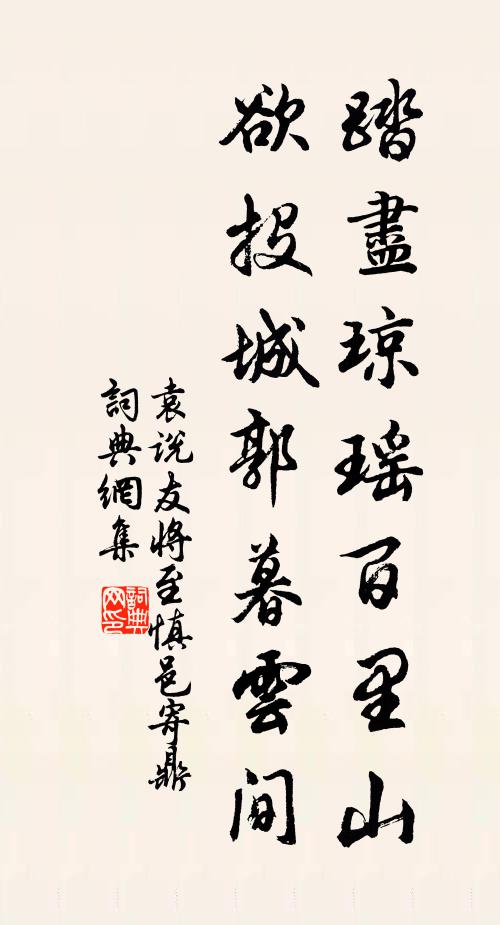 踏盡琼瑶百里山
欲投城郭暮雲间
袁说友将至慎邑寄鼎
詞典網集
詞典网印